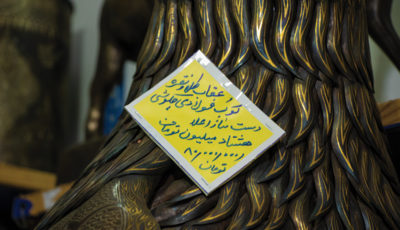 عقاب طلا و نقره
کوب فولادی پهلوی
دست ساز اعلا
هشتاد میلیون تومان
۸۰/۰۰۰/۰۰۰
تومان